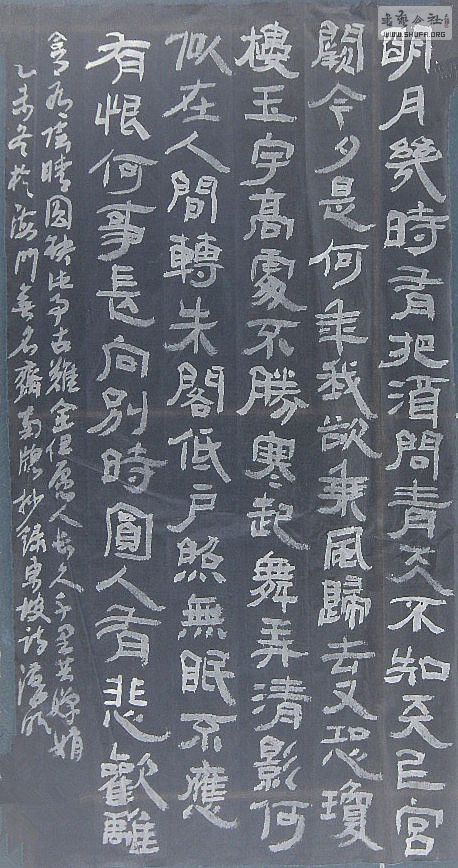 書藝公社
WWW.SHUFA.ORG
明月幾時有把酒問青天不知天上宮
闕今夕是何年我欲乘風歸去又恐瓊
樓玉宇高處不勝寒起舞弄清影何
似在人間轉朱閣低戶照無眠不應
有恨何事長向別時圓人有悲歡離
合月有陰晴圓缺此事古難全但願人長久千里共嬋娟
乙未冬於海門無名齋南窗抄錄東坡詞